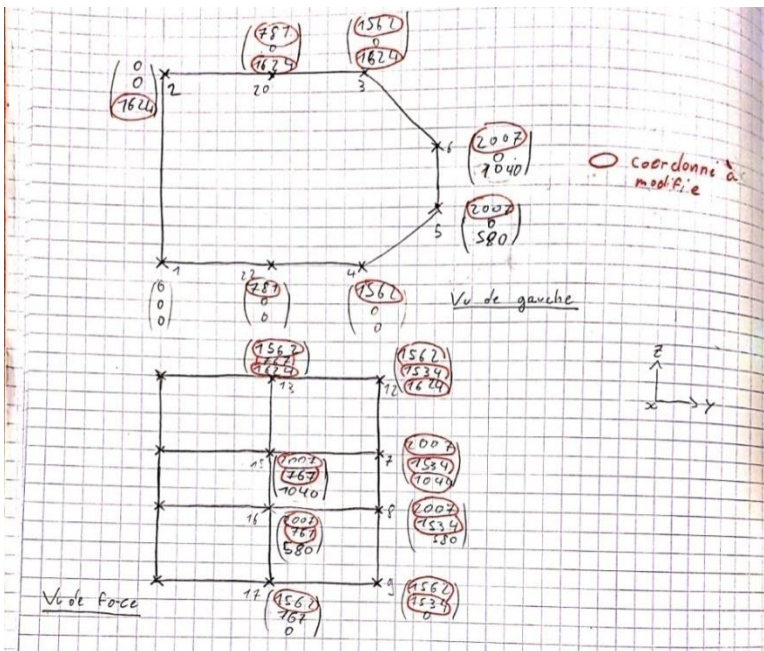 781
0
1624
1562
0
1624
0
0
1624
2
20
3
6
2007
0
1040
coordonni à
modifie
5
2007
0
580
1
22
4
0
0
0
781
0
0
1562
0
0
Vu de gauche
1562
767
1624
13
1562
1534
1624
12
z
x
y
15
2007
767
1040
7
2007
1534
1040
16
2007
767
580
8
2007
1534
580
17
1562
767
0
9
1562
1534
0
Vu de face